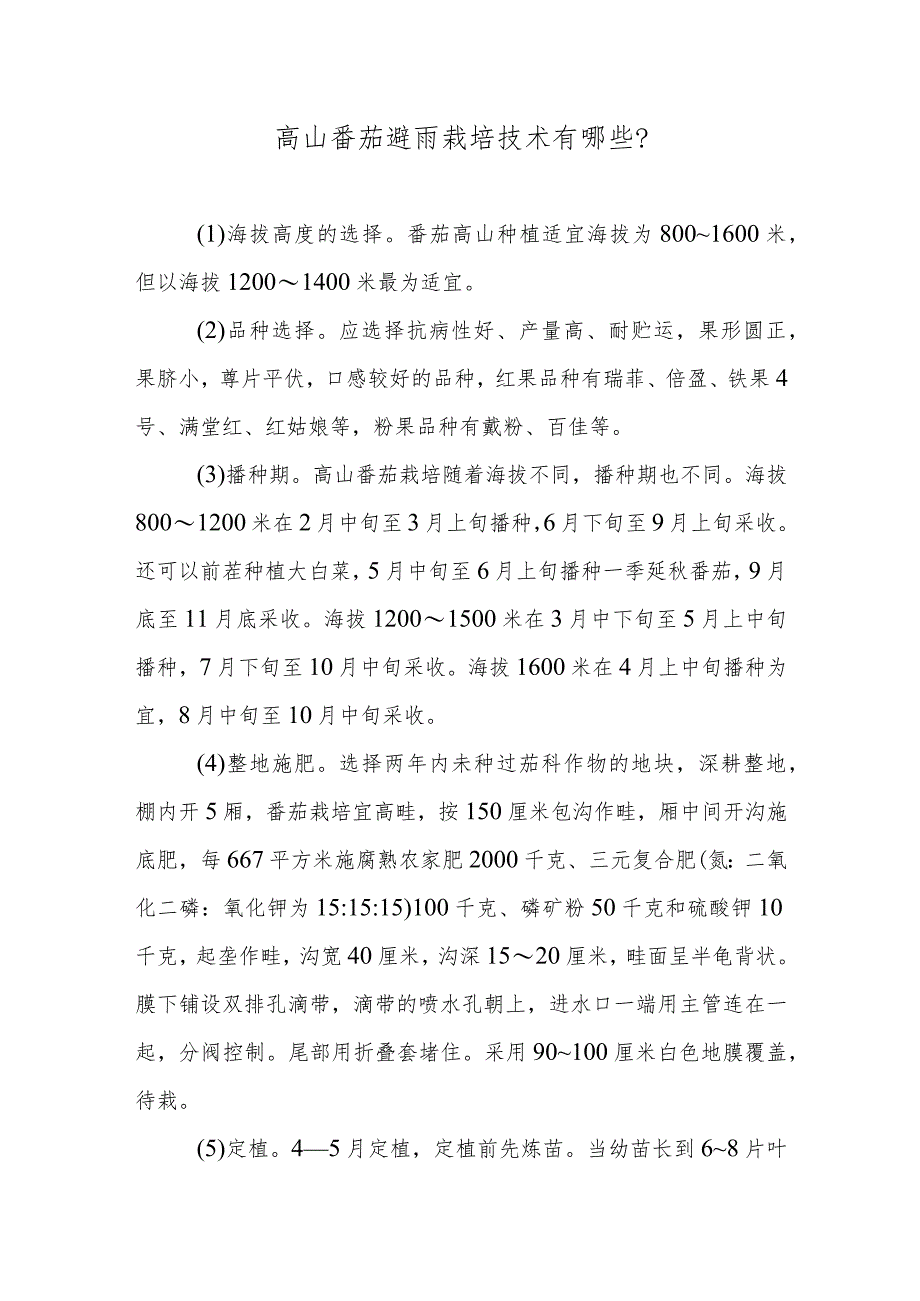 高山番茄避雨栽培技术有哪些?
(1)海拔高度的选择。番茄高山种植适宜海拔为 800~1600 米，
但以海拔 1200～1400 米最为适宜。
(2)品种选择。应选择抗病性好、产量高、耐贮运，果形圆正，
果脐小，尊片平伏，口感较好的品种，红果品种有瑞菲、倍盈、铁果 4
号、满堂红、红姑娘等，粉果品种有戴粉、百佳等。
(3)播种期。高山番茄栽培随着海拔不同，播种期也不同。海拔
800～1200 米在 2 月中旬至 3 月上旬播种，6 月下旬至 9 月上旬采收。
还可以前茬种植大白菜，5 月中旬至 6 月上旬播种一季延秋番茄，9 月
底至 11 月底采收。海拔 1200～1500 米在 3 月中下旬至 5 月上中旬
播种，7 月下旬至 10 月中旬采收。海拔 1600 米在 4 月上中旬播种为
宜，8 月中旬至 10 月中旬采收。
(4)整地施肥。选择两年内未种过茄科作物的地块，深耕整地，
棚内开 5 厢，番茄栽培宜高畦，按 150 厘米包沟作畦，厢中间开沟施
底肥，每 667 平方米施腐熟农家肥 2000 千克、三元复合肥(氮：二氧
化二磷：氧化钾为 15:15:15)100 千克、磷矿粉 50 千克和硫酸钾 10
千克，起垄作畦，沟宽 40 厘米，沟深 15～20 厘米，畦面呈半龟背状。
膜下铺设双排孔滴带，滴带的喷水孔朝上，进水口一端用主管连在一
起，分阀控制。尾部用折叠套堵住。采用 90~100 厘米白色地膜覆盖，
待栽。
(5)定植。4—5 月定植，定植前先炼苗。当幼苗长到 6~8 片叶